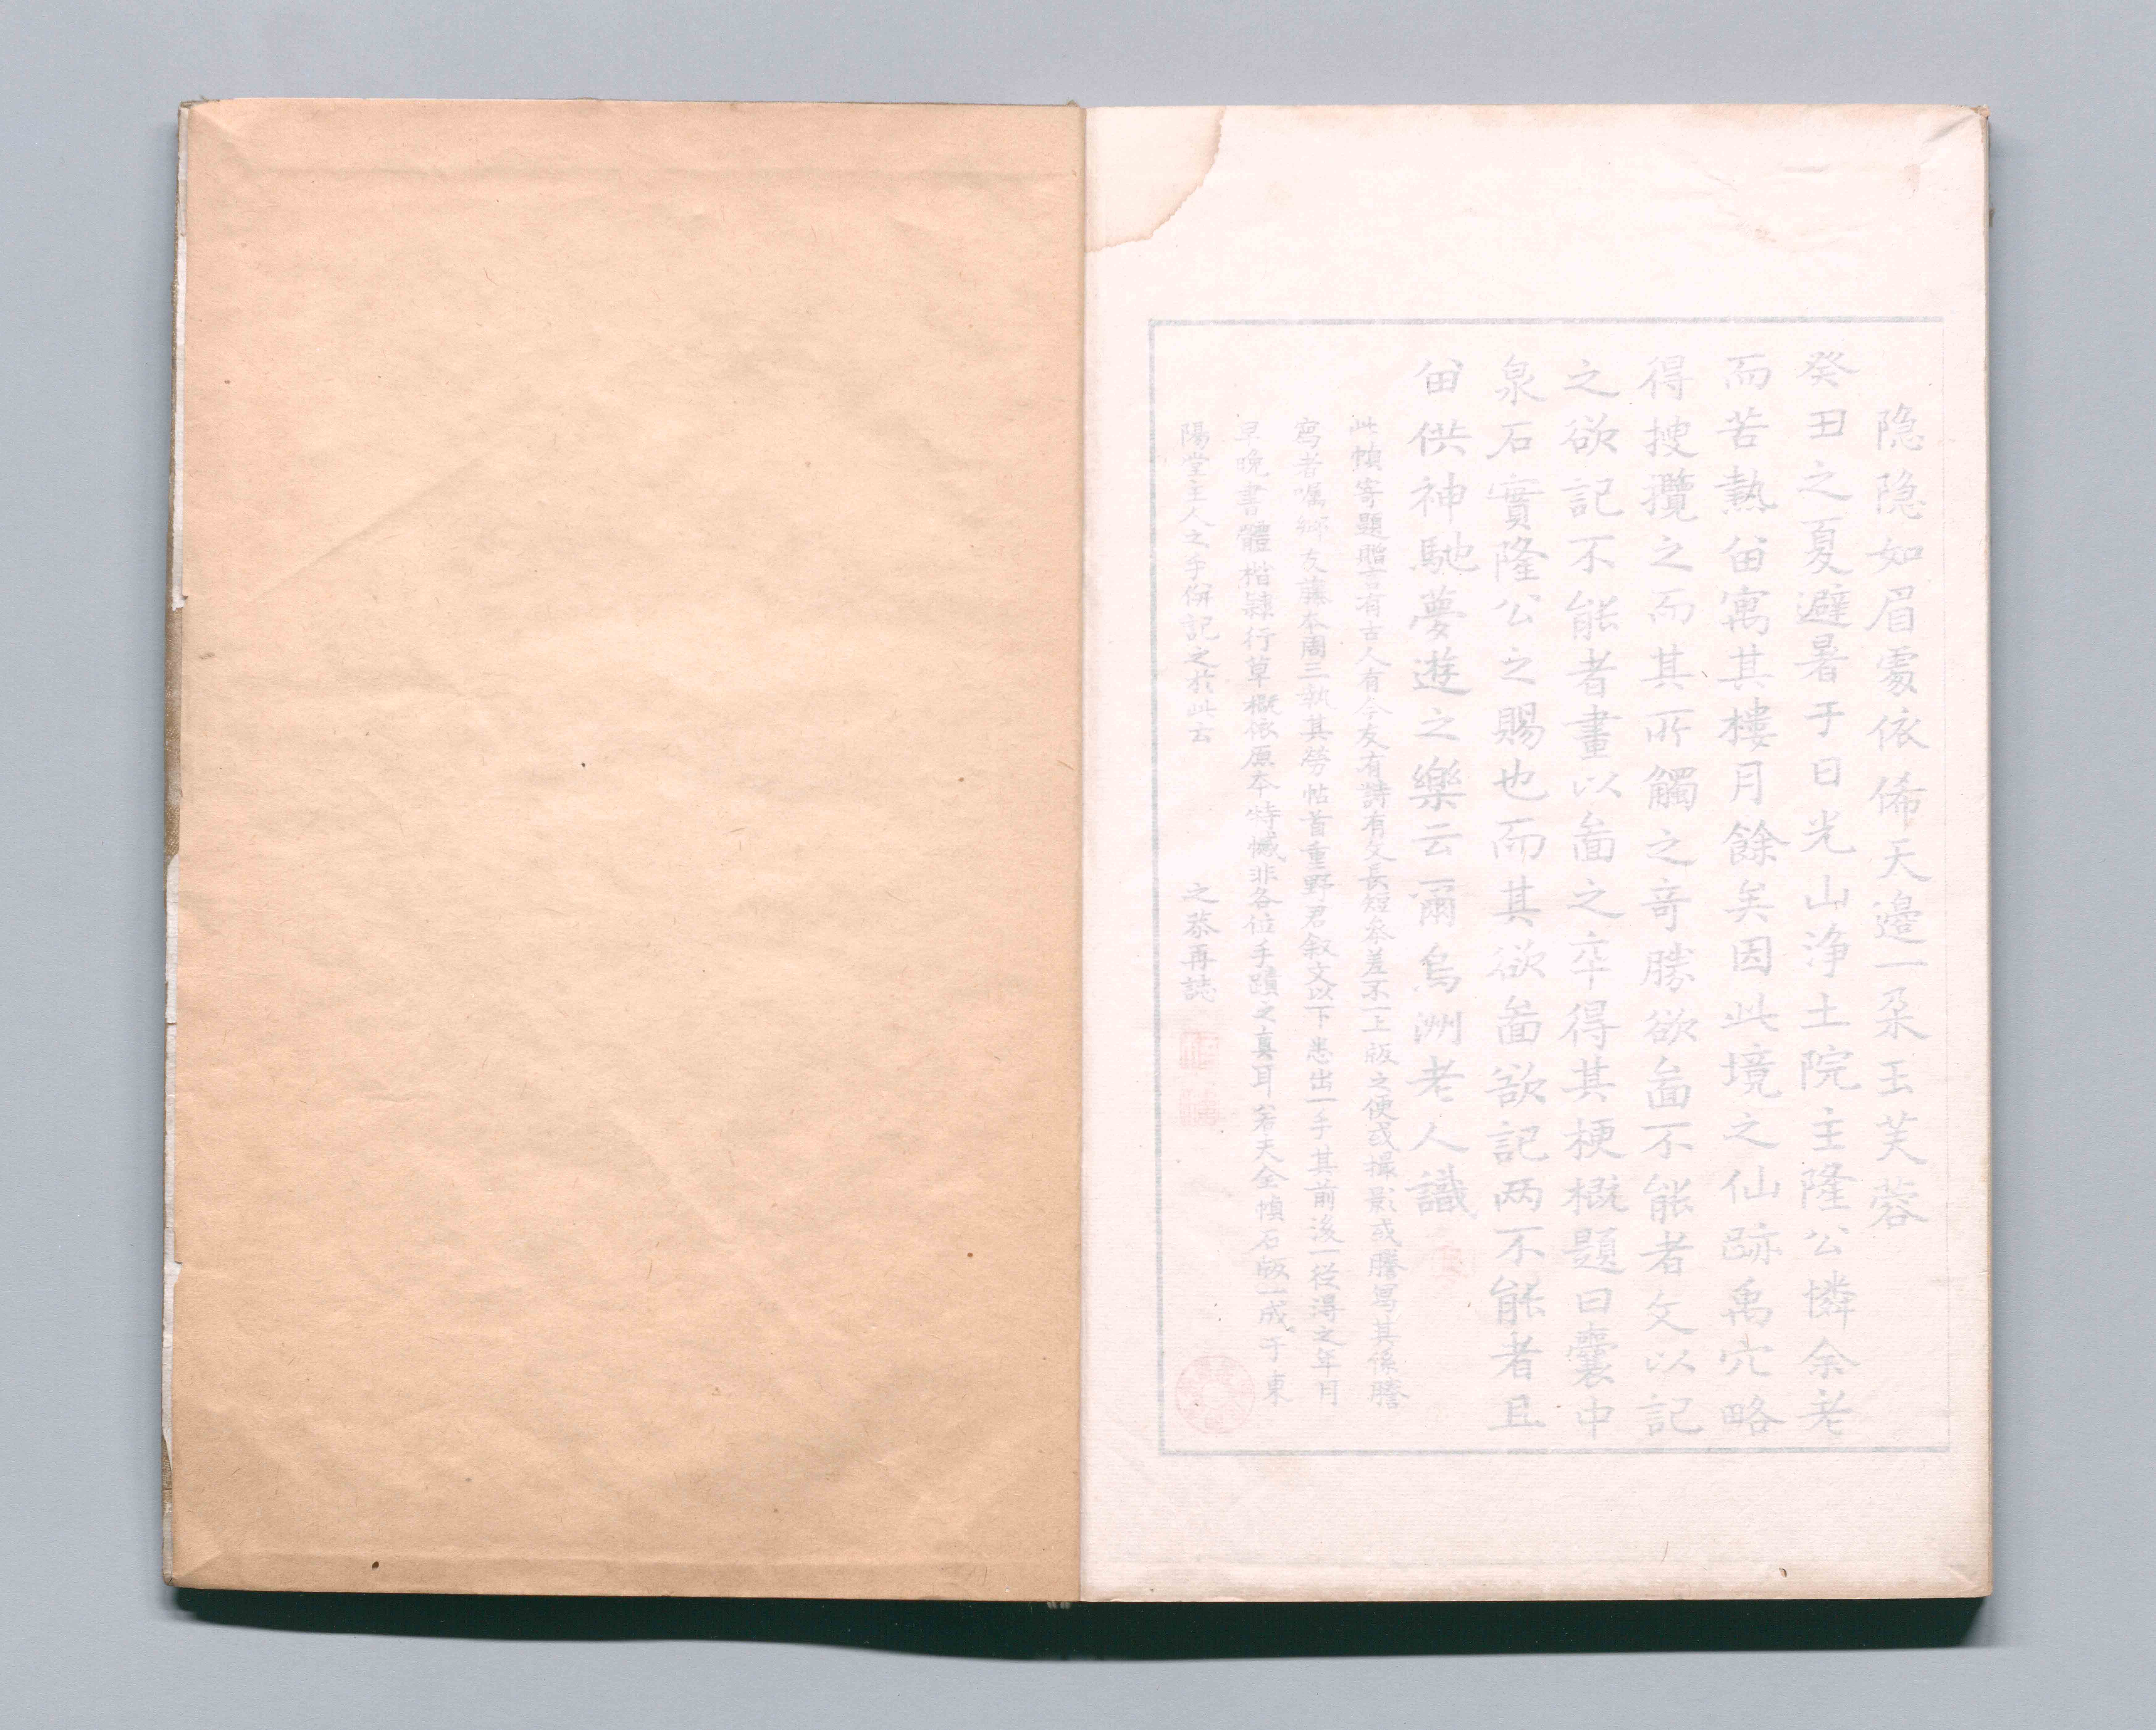 隐隐如眉處依俙天邊一朵玉芙蓉
癸丑之夏避暑于日光山浄土院主隆公憐余老
而苦熱留寓其樓月餘矣因此境之仙跡禹穴略
得捜攬之而其所觸之竒勝欲畵不能者文以記
之欲記不能者畫以啚之卒得其梗概題曰囊中
泉石實隆公之賜也而其欲啚欲記两不能者且
留供神馳夢遊之樂云爾烏洲老人識
此幀寄題贈言有古人有今友有詩有文長短参差不一上版之便或撮影或謄寫其係謄
寫者囑鄉友藤本周三執其勞帖首重野君叙文以下悉出一手其前後一從得之年月
早晚書體楷隷行草概依原本特憾非各位手蹟之真耳若夫全幀石版一成于東
陽堂主人之手併記之於此云
之恭再誌